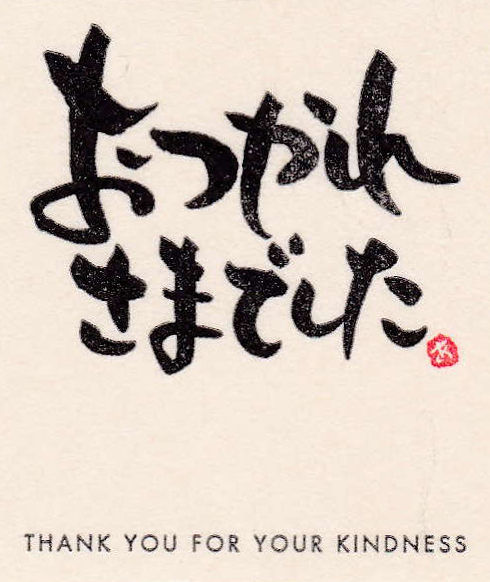 おつかれ
さまでした
THANK YOU FOR YOUR KINDNESS